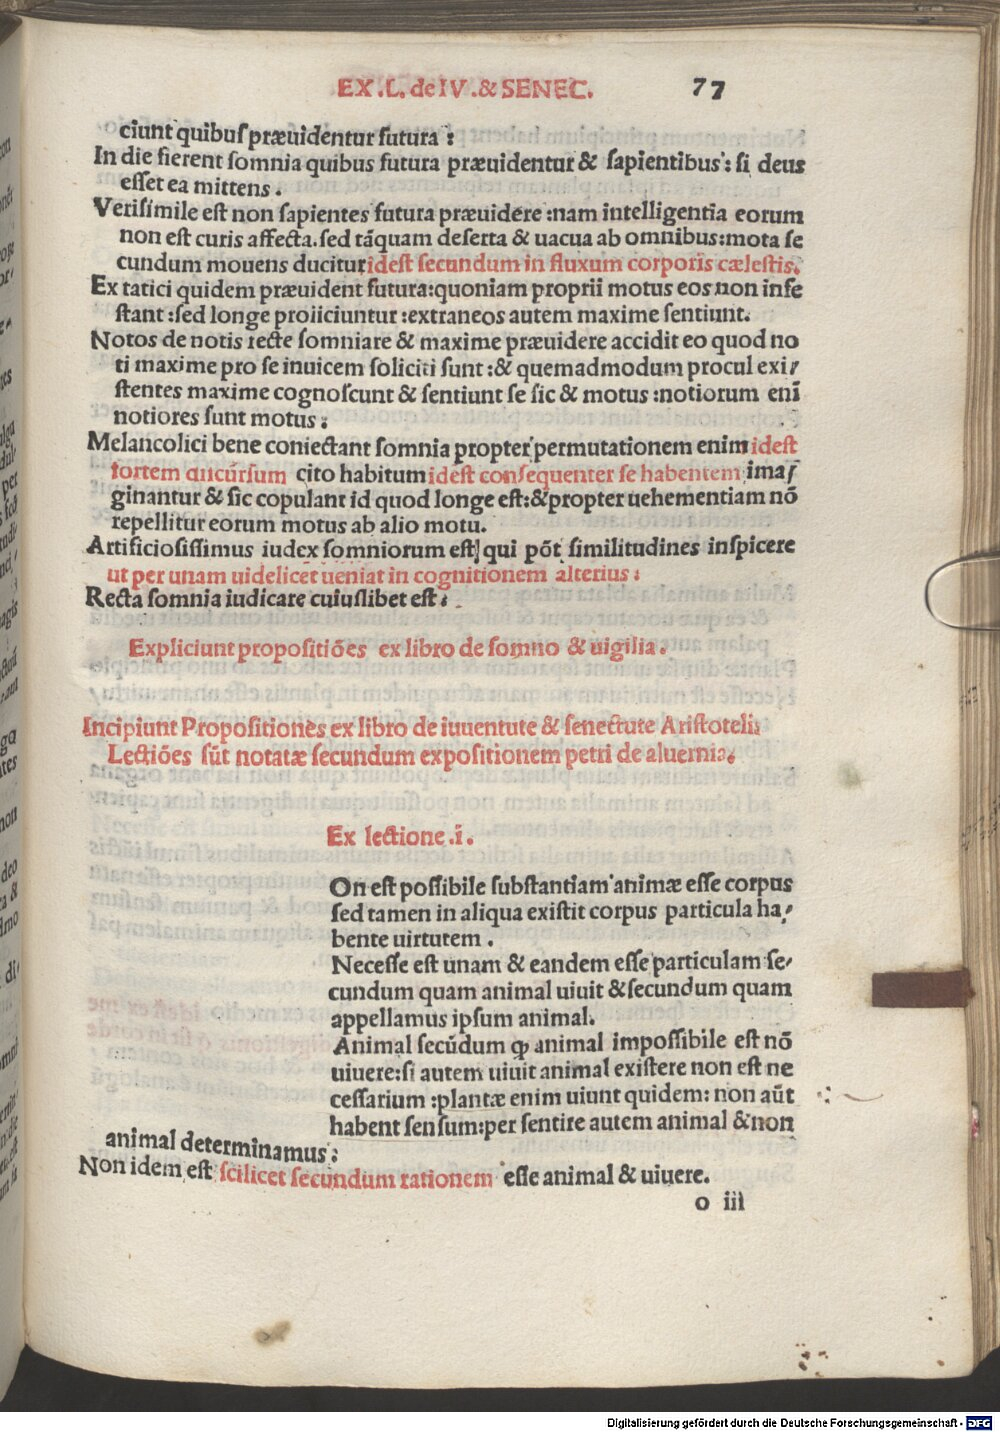 EX .L. de IV .& SENEC. 77
ciunt quibuſ præuidentur futura :
In die fierent ſomnia quibus futura præuidentur & ſapientibus : ſi deus
eſſet ea mittens .
Veriſimile eſt non ſapientes futura præuidere :nam intelligentia eorum
non eſt curis affecta.ſed tāquam deſerta & uacua ab omnibus:mota ſe
cundum mouens ducitur ideſt ſecundum in fluxum corporis cæleſtis.
Ex tatici quidem præuident futura:quoniam proprii motus eos non infe
ſtant :ſed longe proiiciuntur :extraneos autem maxime ſentiunt.
Notos de notis recte ſomniare & maxime præuidere accidit eo quod no
ti maxime pro ſe inuicem ſoliciti ſunt :& quemadmodum procul exi/
ſtentes maxime cognoſcunt & ſentiunt ſe ſic & motus :notiorum enī
notiores ſunt motus :
Melancolici bene coniectant ſomnia propter permutationem enim ideſt
fortem incūrſum cito habitum ideſt conſequenter ſe habentem ima/
ginantur & ſic copulant id quod longe eſt:& propter uehementiam nō
repellitur eorum motus ab alio motu.
Artificioſiſſimus iudex ſomniorum eſt qui pōt ſimilitudines inſpicere
ut per unam uidelicet ueniat in cognitionem alterius :
Recta ſomnia iudicare cuiuſlibet eſt .
Expliciunt propoſitiōes ex libro de ſomno & uigilia .
Incipiunt Propoſitiones ex libro de iuuentute & ſenectute Ariſtotelis
Lectiōes ſūt notatæ ſecundum expoſitionem petri de aluernia.
Ex lectione .i.
On eſt poſſibile ſubſtantiam animæ eſſe corpus
ſed tamen in aliqua exiſtit corpus particula ha/
bente uirtutem .
Neceſſe eſt unam & eandem eſſe particulam ſe/
cundum quam animal uiuit & ſecundum quam
appellamus ipſum animal.
Animal ſecūdum ꝙ animal impoſſibile eſt nō
uiuere:ſi autem uiuit animal exiſtere non eſt ne
ceſſarium :plantæ enim uiunt quidem: non aūt
habent ſenſum:per ſentire autem animal & non
animal determinamus :
Non idem eſt ſcilicet ſecundum rationem eſſe animal & uiuere.
o iii
Digitalisierung gefördert durch die Deutsche Forschungsgemeinschaft - DFG